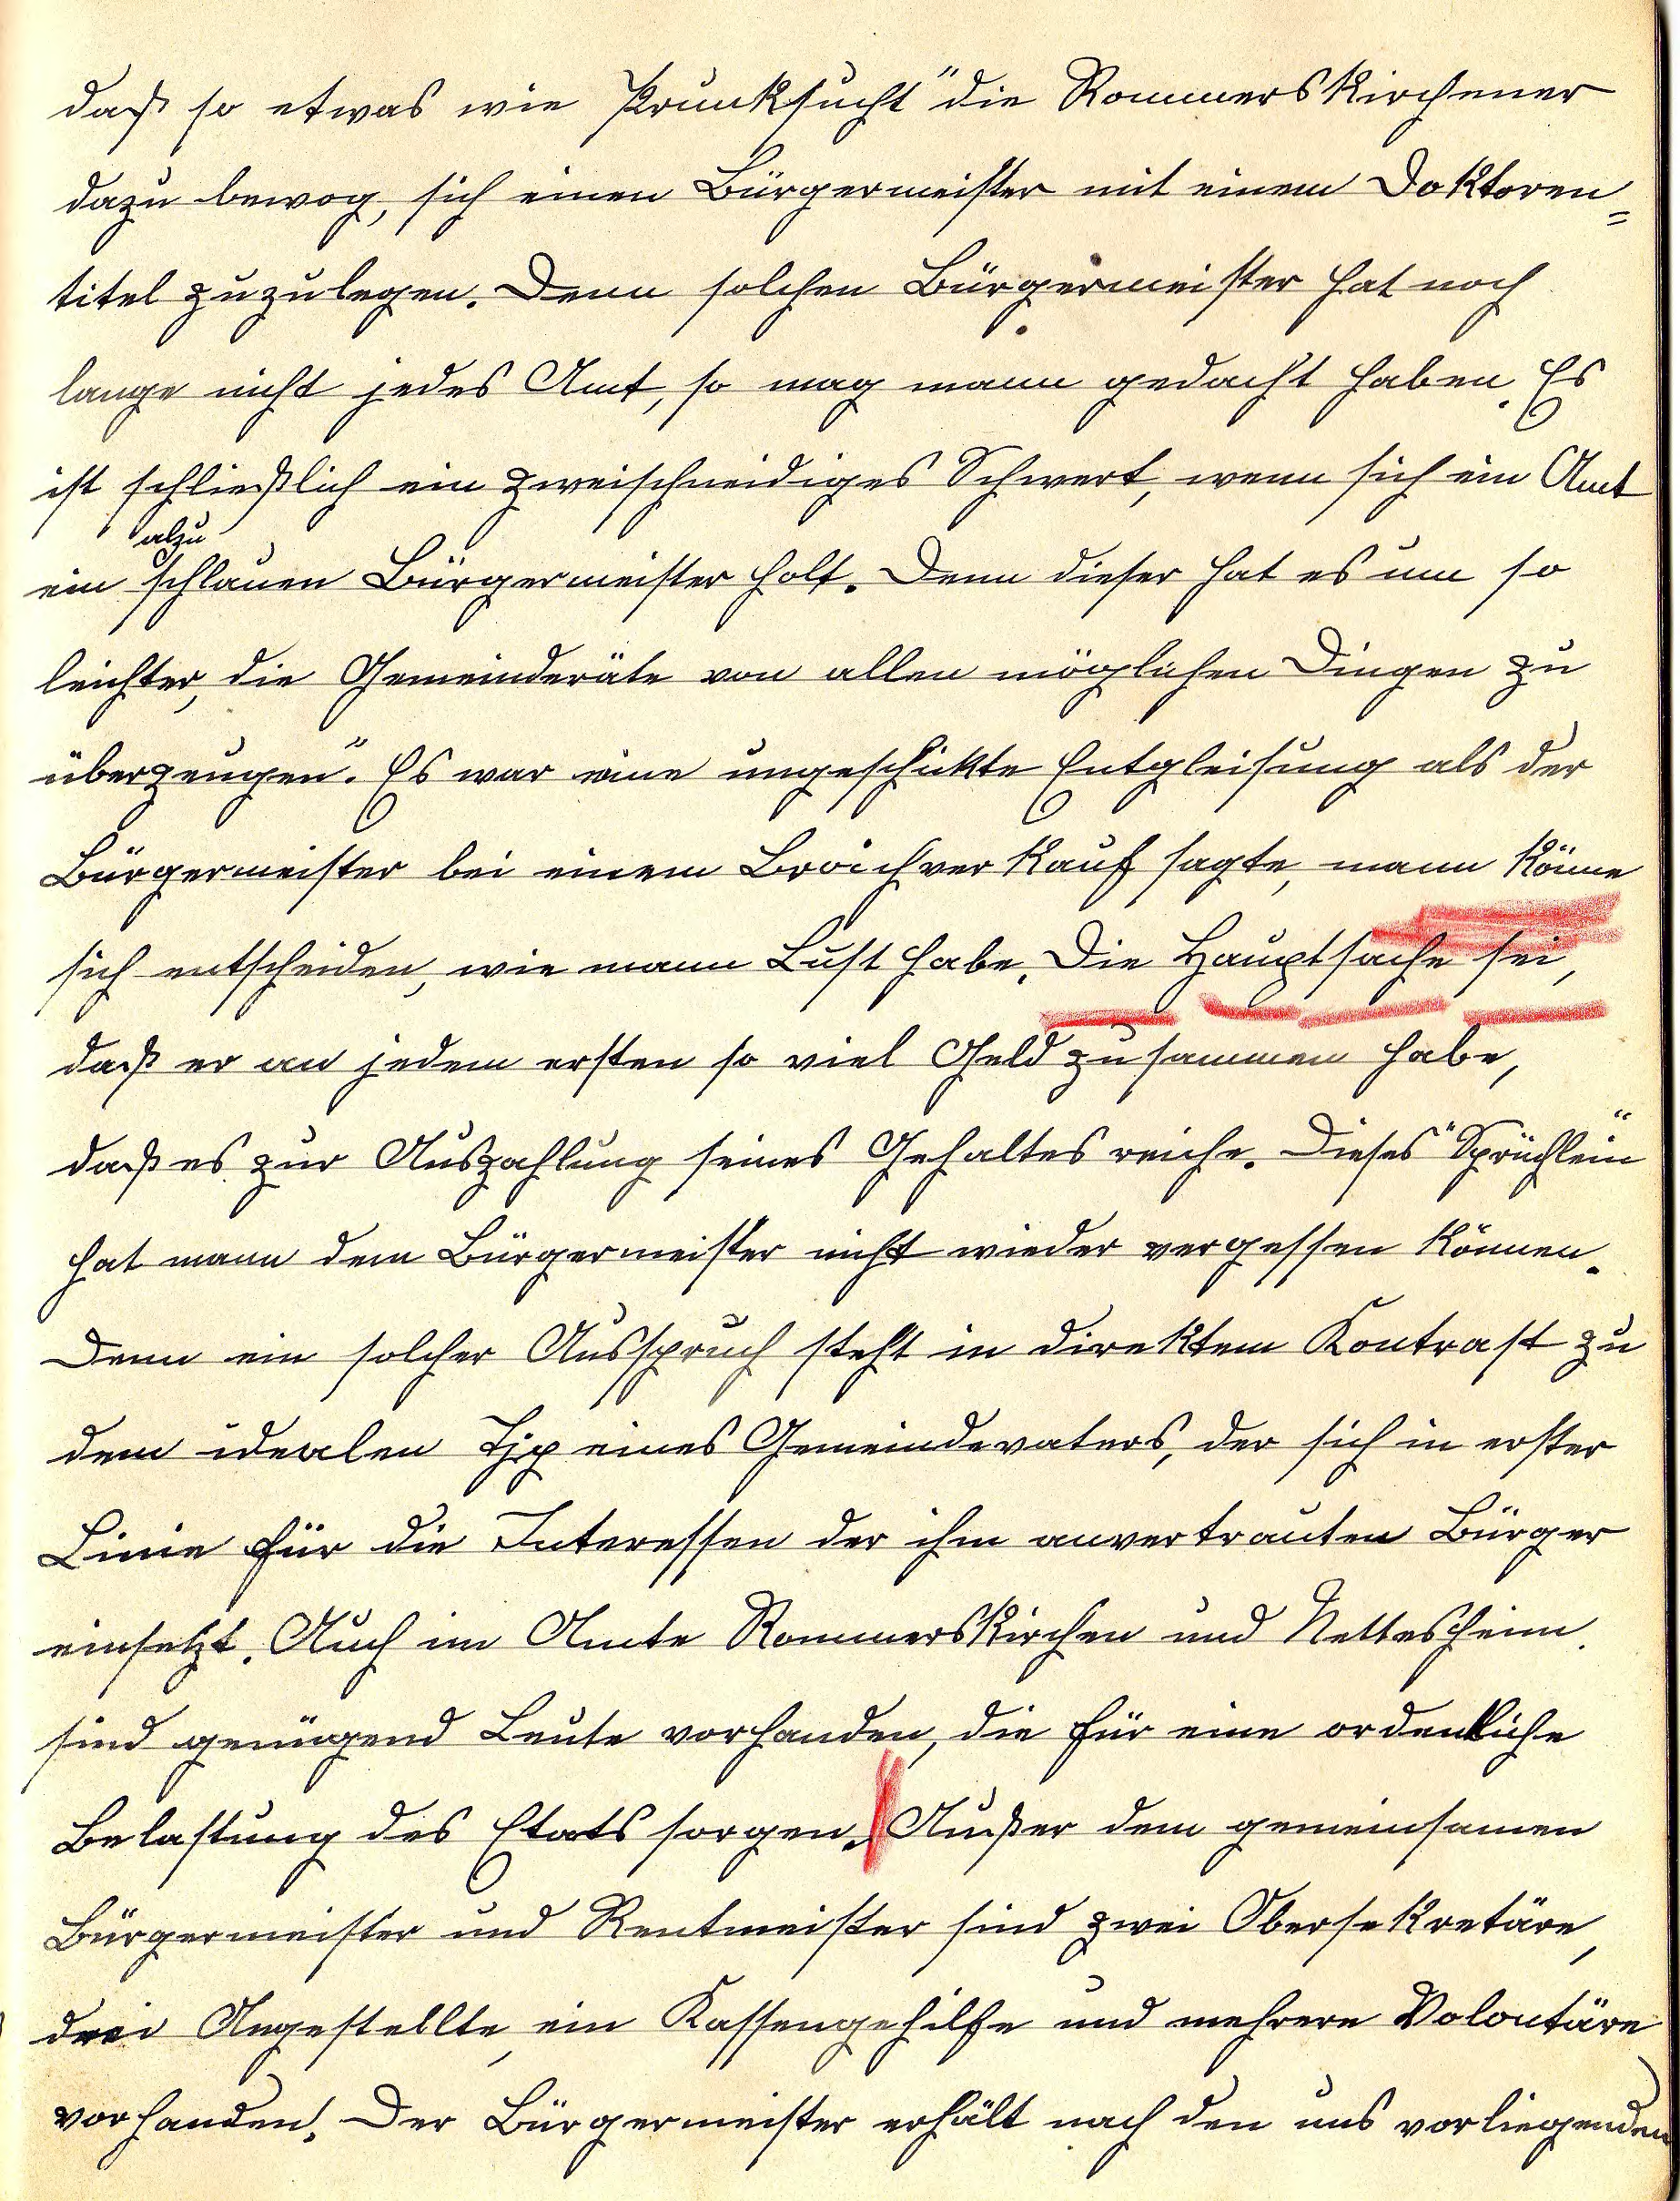 daß so etwas wie Prunksucht" die Rommerskirchener
dazu bewog, sich einen Bürgermeister mit einem Doktoren=
titel zuzulegen. Denn solchen Bürgermeister hat noch
lange nicht jedes Amt, so mag mann gedacht haben. Es
ist schließlich ein zweischneidiges Schwert, wenn sich ein Amt
alzu
ein schlauen Bürgermeister holt. Denn dieser hat es um so
leichter, die Gemeinderäte von allen möglichen Dingen zu
überzeugen". Es war eine ungeschickte Entgleisung als der
Bürgermeister bei einem Broichverkauf sagte, mann könne
sich entscheiden, wie mann Lust habe. Die Hauptsache sei,
daß er an jedem ersten so viel Geld zusammen habe,
daß es zur Auszahlung seines Gehaltes reiche. Dieses "Sprüchlein"
hat mann dem Bürgermeister nicht wieder vergessen können.
Denn ein solcher Ausspruch steht in direktem Kontrast zu
dem idealen Typ eines Gemeindevaters, der sich in erster
Linie für die Interessen der ihm anvertrauten Bürger
einsetzt. Auch im Amte Rommerskirchen und Nettesheim
sind genügend Leute vorhanden, die für eine ordentliche
Belastung des Etats sorgen. Außer dem gemeinsamen
Bürgermeister und Rentmeister sind zwei Obersekretäre,
drei Angestellte, ein Kassengehilfe und mehrere Volontäre
vorhanden. Der Bürgermeister erhält nach den uns vorliegenden